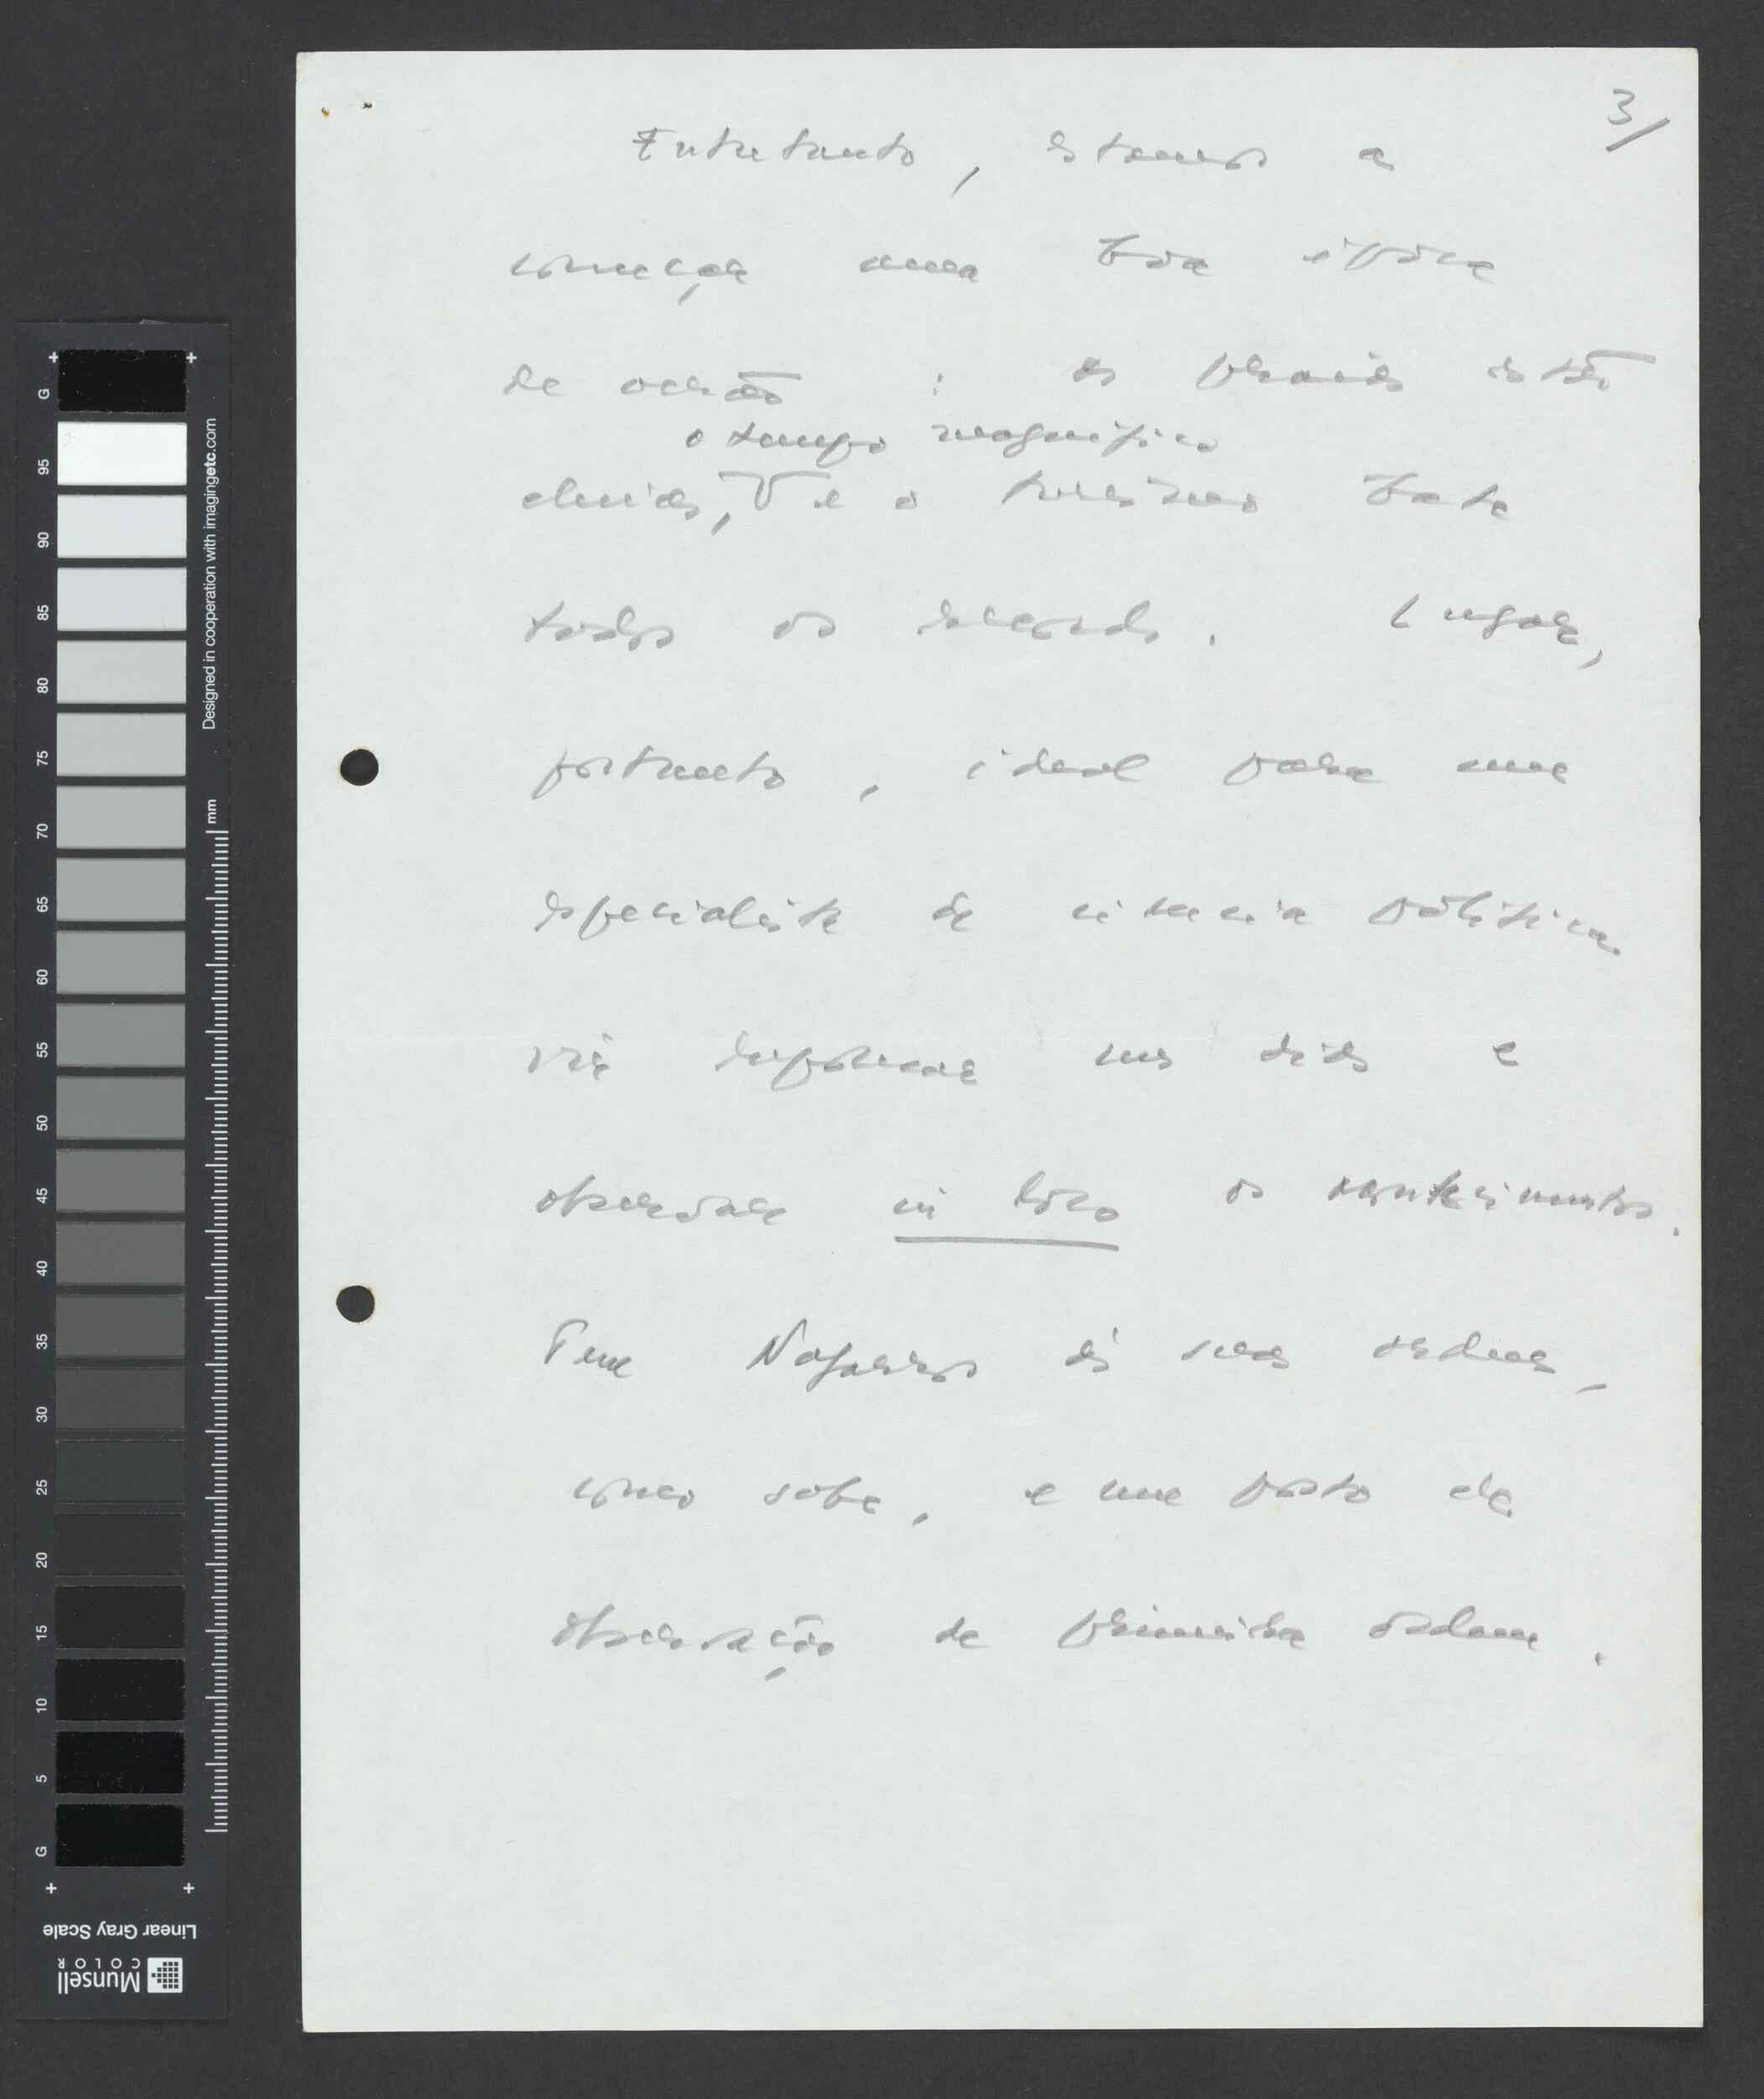 3/
Entretanto, estamos a
começar uma boa época
de verão : as praias estão
o tempo magnífico
cheias, e o turismo bate
todos os records. Lugar,
portanto, ideal para um
especialista de ciencia politica
vir repousar uns dias e
observar in loco os acontecimentos.
Tem Nafarros às suas ordens,
como sabe, e um posto de
observação de primeira ordem.
G
95
90
85
80
75
70
65
60
55
50
45
40
35
30
25
20
15
10
5
G
Designed in cooperation with imagingetc.com
mm
Linear Gray Scale
Munsell
COLOR